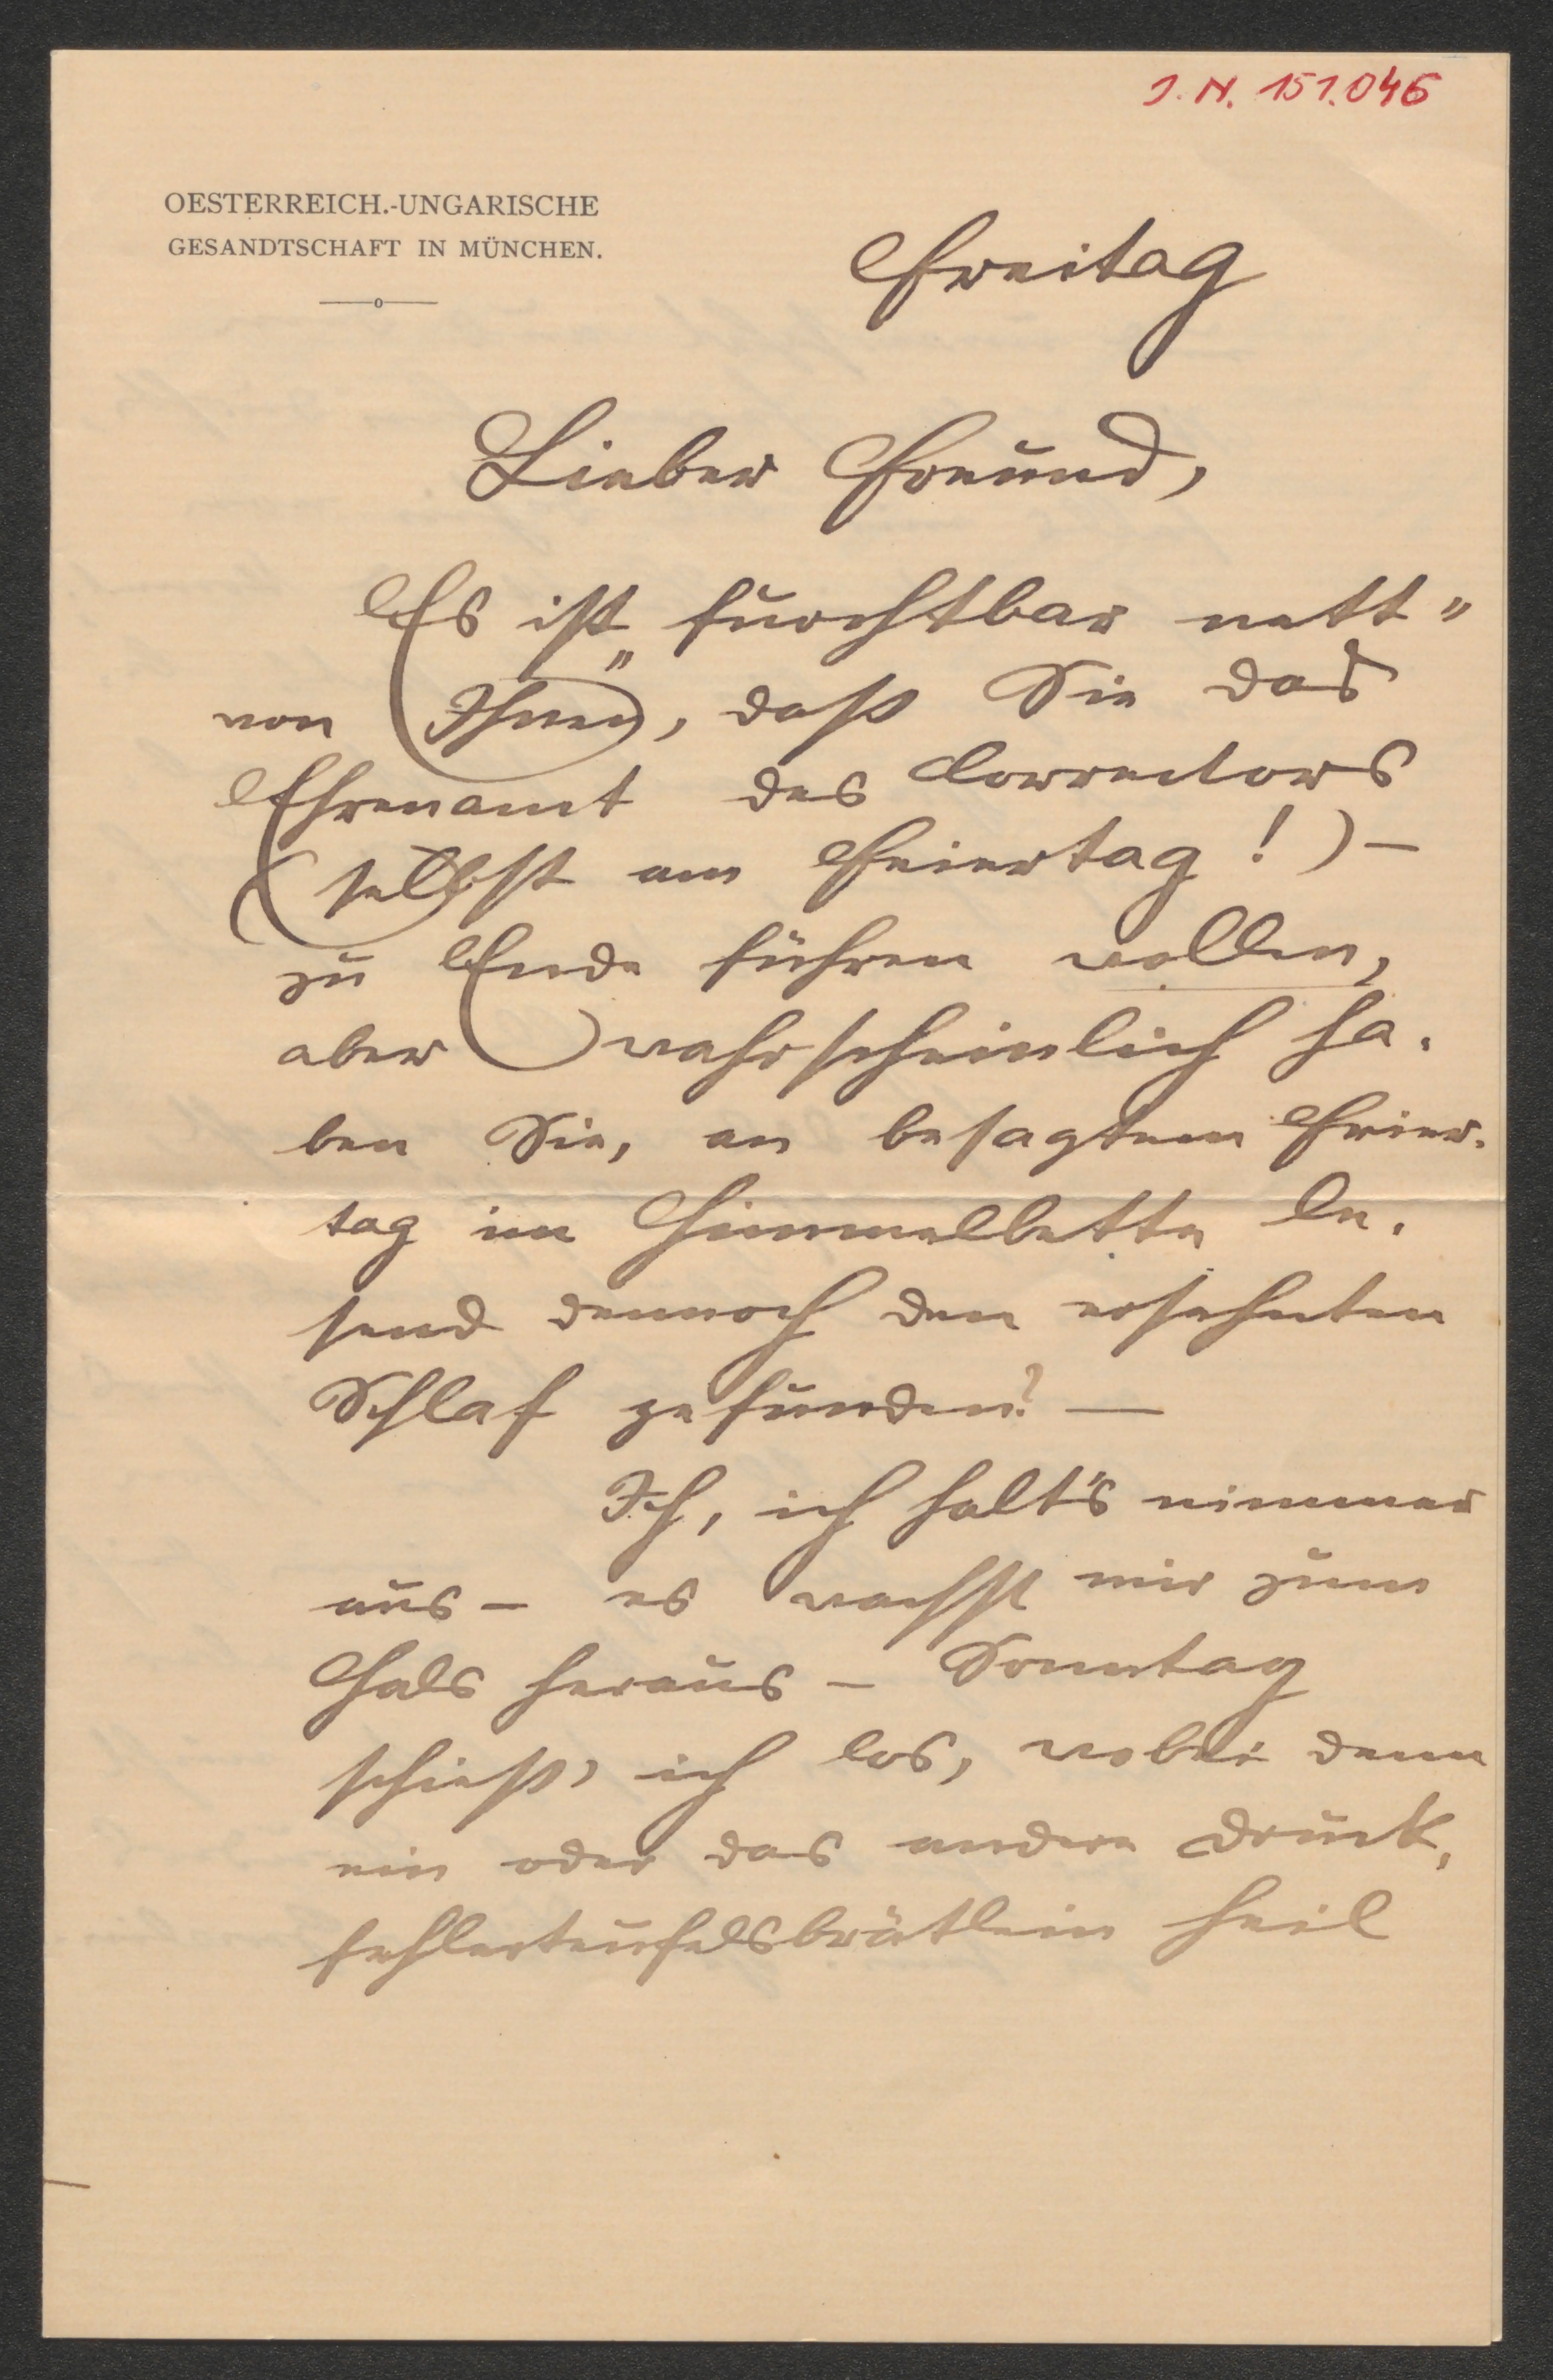 J. N. 151.046
OESTERREICH.-UNGARISCHE
GESANDTSCHAFT IN MÜNCHEN.
Freitag
Lieber Freund,
Es ist „furchtbar nett"
von Ihnen, daß Sie das
Ehrenamt des Correctors
(selbst am Feiertag!) –
zu Ende führen wollen,
aber wahrscheinlich ha-
ben Sie, an besagtem Feier-
tag im Himmelbette le-
send dennoch den ersehnten
Schlaf gefunden? —
Ich, ich halt's nimmer
aus – es wachst mir zum
Hals heraus – Sonntag
schieß' ich los, wobei denn
ein oder das andere Druck-
fehlerteufelsbrätlein heil